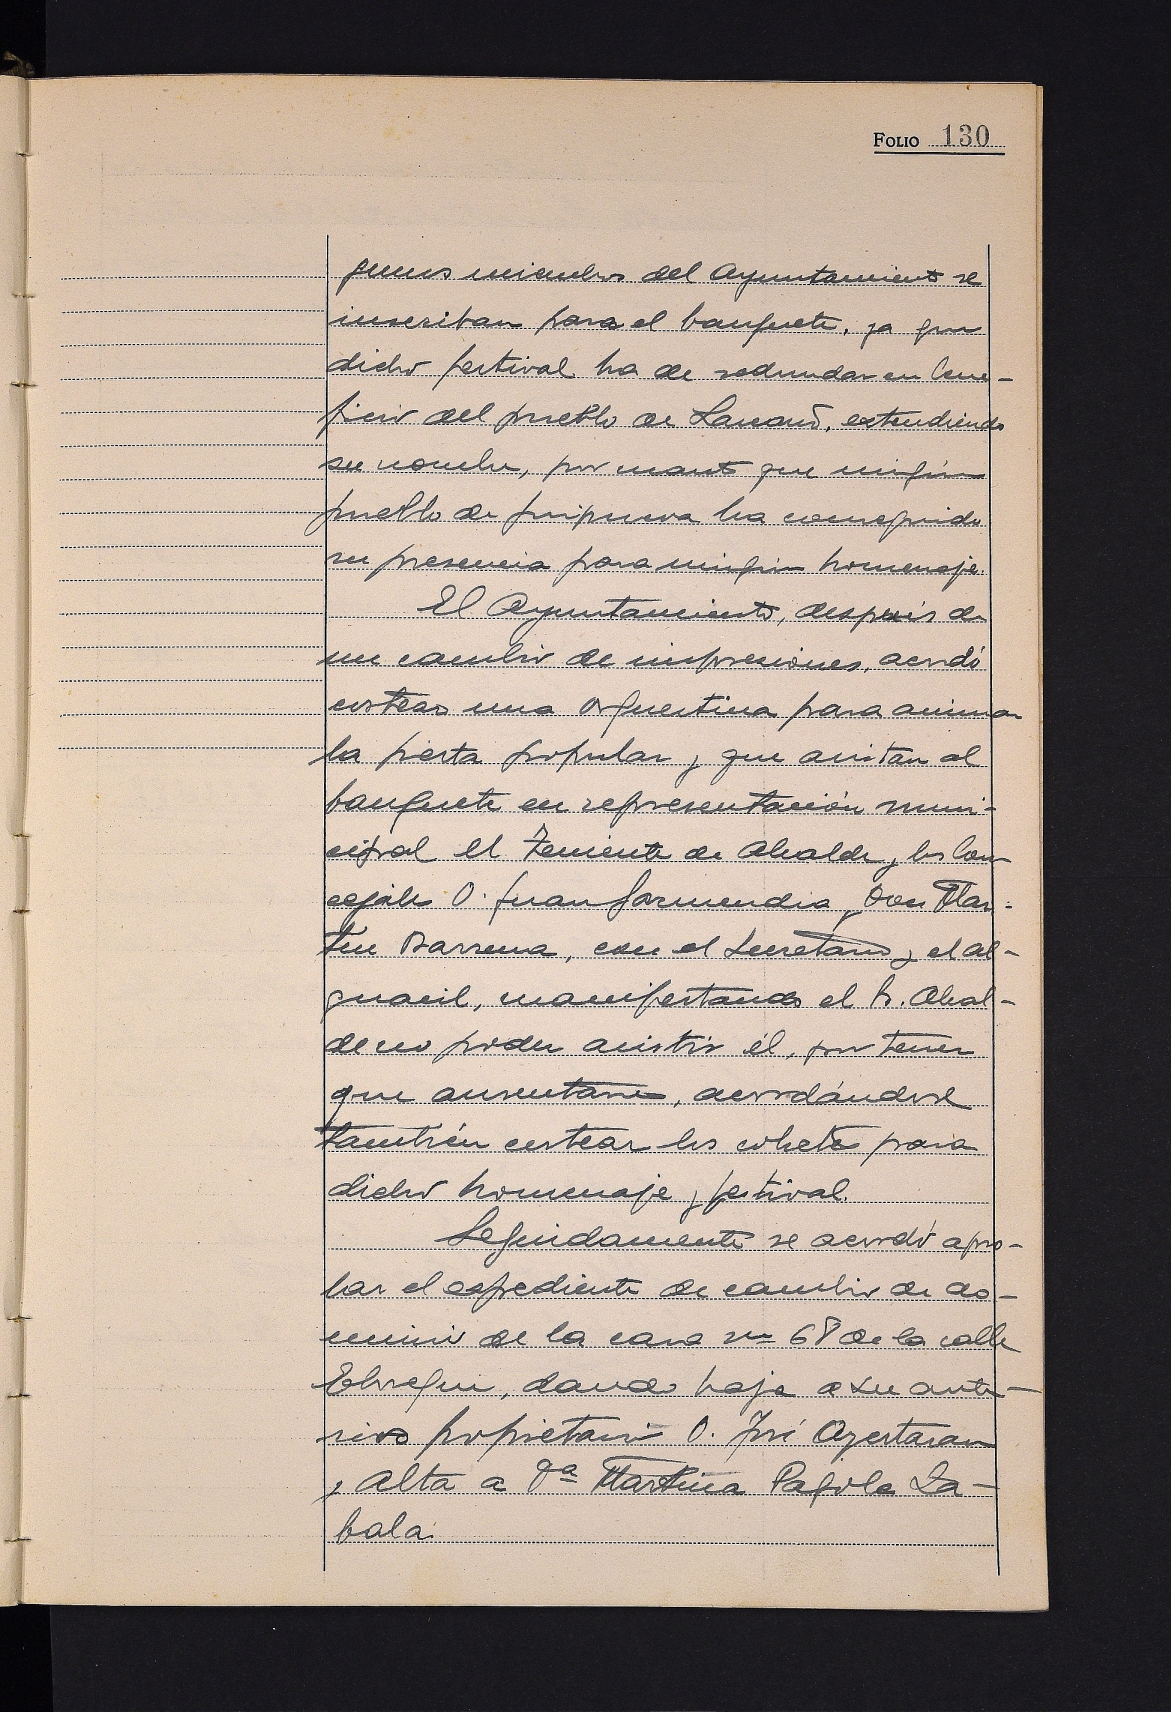 FOLIO 130
gunos miembros del Ayuntamiento se
inscriban para el banquete, ya que
dicho festival ha de redundar en bene-
ficio del pueblo de Lazcano, extendiendo
su nombre, por cuanto que ningún
pueblo de Guipuzcoa ha conseguido
su presencia para ningún homenaje.
El Ayuntamiento, después de
un cambio de impresiones, acordó
costear una orquestina para animar
la fiesta popular y que asistan al
banquete en representación muni-
cipal el Teniente de Alcalde y los Con
cejales D. Juan Garmendia y Don Mar-
tin Barrena, con el Secretario y el al-
guacil, manifestando el Sr. Alcal-
de no poder asistir él, por tener
que ausentarse, acordándose
también costear los cohetes para
dicho homenaje y festival.
Seguidamente se acordó apro-
bar el expediente de cambio de do-
minio de la casa nº 68 de la calle
Elosegui, dando baja a su ante-
rior propietario D. José Ayestaran
y alta a Dª Martina Pagola Za-
bala.